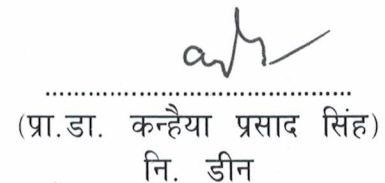 ....................................................
(प्रा.डा. कन्हैया प्रसाद सिंह)
नि. डीन